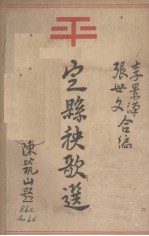 李景漢
張世文 合編
定縣秧歌選
陳筑山題
862